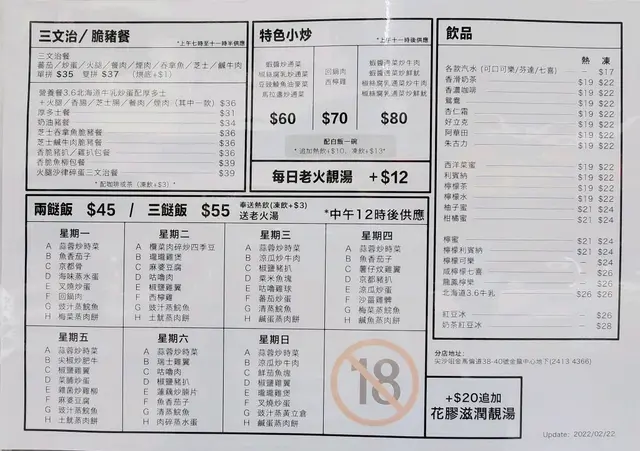 三文治/脆豬餐
*上午七時至十一時半供應
三文治餐
蕃茄/炒蛋/火腿/餐肉/煙肉/吞拿魚/芝士/鹹牛肉
單拼 $35 雙拼 $37 (烘底+$1)
營養餐3.6北海道牛乳炒蛋配厚多士
+火腿/香腸/芝士腸/餐肉/煙肉(其中一款) $36
厚多士餐 $31
奶油豬餐 $34
芝士吞拿魚脆豬餐 $36
芝士鹹牛肉脆豬餐 $36
香脆豬扒/雞扒包餐 $36
香脆魚柳包餐 $39
火腿沙律碎蛋三文治餐 $39
*配咖啡或茶(凍飲+$3)
特色小炒
*上午十一時後供應
蝦醬炒通菜
椒絲腐乳炒通菜
豆豉鯪魚油麥菜
馬拉盞炒通菜
$60
回鍋肉
西檸雞
$70
蝦醬通菜炒牛肉
蝦醬通菜炒鮮魷
椒絲腐乳通菜炒牛肉
椒絲腐乳通菜炒鮮魷
$80
配白飯一碗
*追加熱飲+$10、凍飲+$13*
每日老火靚湯 +$12
飲品
熱 凍
各款汽水(可口可樂/芬達/七喜) – $17
香滑奶茶 $19 $22
香濃咖啡 $19 $22
鴛鴦 $19 $22
杏仁霜 $19 $22
好立克 $19 $22
阿華田 $19 $22
朱古力 $19 $22
西洋菜蜜 $19 $22
利賓納 $19 $22
檸檬茶 $19 $22
檸檬水 $19 $22
柚子蜜 $21 $24
柑橘蜜 $21 $24
檸蜜 $21 $24
檸檬利賓納 $21 $24
檸檬可樂 – $24
咸檸檬七喜 – $26
龍鳳檸樂 – $26
北海道3.6牛乳 $26 $26
紅豆冰 – $26
奶茶紅豆冰 – $28
兩餸飯 $45 / 三餸飯 $55
奉送熱飲(凍飲+$3)
送老火湯
*中午12時後供應
星期一
A 蒜蓉炒時菜
B 魚香茄子
C 京都骨
D 海味蒸水蛋
E 叉燒炒蛋
F 回鍋肉
G 豉汁蒸鯇魚
H 梅菜蒸肉餅
星期二
A 欖菜肉碎炒四季豆
B 嚨嚨雞煲
C 麻婆豆腐
D 咕嚕肉
E 椒鹽雞翼
F 西檸雞
G 豉汁蒸鯇魚
H 土魷蒸肉餅
星期三
A 蒜蓉炒時菜
B 涼瓜炒牛肉
C 椒鹽豬扒
D 粟米魚塊
E 咕嚕雞球
F 蕃茄炒蛋
G 清蒸鯇魚
H 鹹蛋蒸肉餅
星期四
A 蒜蓉炒時菜
B 魚香茄子
C 薯仔炆雞翼
D 京都豬扒
E 涼瓜炒蛋
F 沙薑雞髀
G 梅菜蒸鯇魚
H 鹹魚蒸肉餅
星期五
A 蒜蓉炒時菜
B 尖椒炒肥牛
C 椒鹽雞翼
D 菜脯炒蛋
E 雜菌炒雞柳
F 麻婆豆腐
G 豉汁蒸鯇魚
H 土魷蒸肉餅
星期六
A 蒜蓉炒時菜
B 瑞士雞翼
C 咕嚕肉
D 椒鹽豬扒
E 蓮藕炒腩片
F 魚香茄子
G 清蒸鯇魚
H 肉碎蒸水蛋
星期日
A 蒜蓉炒時菜
B 涼瓜炒牛肉
C 鮮茄魚塊
D 椒鹽雞翼
E 嚨嚨雞煲
F 叉燒炒蛋
G 豉汁蒸黃立倉
H 鹹蛋蒸肉餅
18
分店地址:
尖沙咀金馬倫道38-40號金龍中心地下(2413 4366)
+$20追加
花膠滋潤靚湯
Update: 2022/02/22